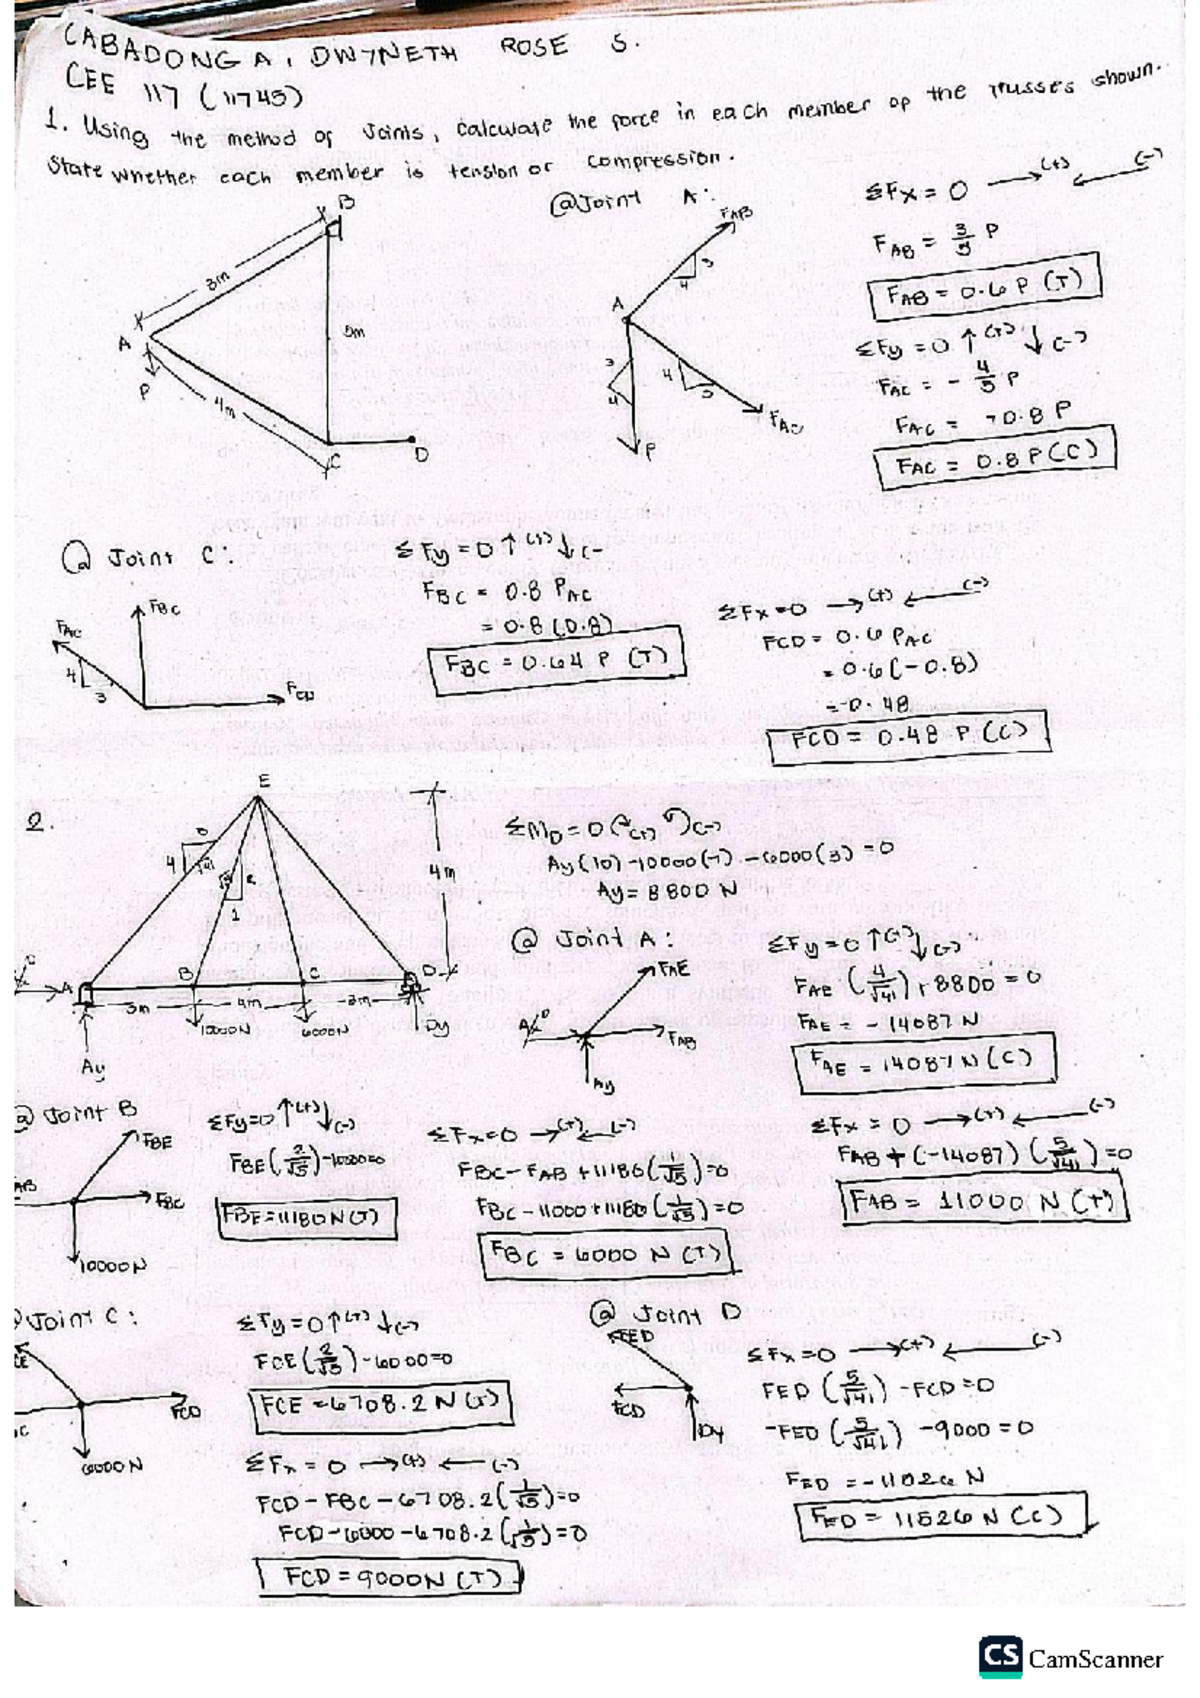 CABADONGA, DWYNETH ROSE S.
CEE 117 (11745)
1. Using the method of Joints, calculate the force in each member of the trusses shown.
State whether each member is tension or compression.
@Joint A:
B
3m
5m
A
P
4m
C
D
FAB
3
4
A
3
4
4
3
FAC
P
ΣFx = 0 → (+) ← (-)
FAB = 3/5 P
FAB = 0.6 P (T)
ΣFy = 0 ↑ (+) ↓ (-)
FAC = - 4/5 P
FAC = -0.8 P
FAC = 0.8 P (C)
@ Joint C:
FBC
FAC
4
3
FCD
ΣFy = 0 ↑ (+) ↓ (-
FBC = 0.8 PAC
= 0.8 (0.8)
FBC = 0.64 P (T)
ΣFx = 0 → (+) ← (-)
FCD = 0.6 PAC
= 0.6 (-0.8)
= -0.48
FCD = 0.48 P (C)
2.
E
4
√41
√5
2
1
4m
A
B
C
D
3m
4m
3m
10000N
6000N
Ay
Dy
ΣMD = 0 (+) (-)
Ay(10) -10000(7) -6000(3) = 0
Ay = 8800 N
@ Joint A:
FAE
FAB
Ay
ΣFy = 0 ↑ (+) ↓ (-)
FAE (4/√41) + 8800 = 0
FAE = - 14087 N
FAE = 14087 N (C)
@ Joint B
FBE
AB
FBC
10000N
ΣFy = 0 ↑ (+) ↓ (-)
FBE (2/√5) - 10000 = 0
FBE = 11180 N (T)
ΣFx = 0 → (+) ← (-)
FBC - FAB + 11180 (1/√5) = 0
FBC - 11000 + 11180 (1/√5) = 0
FBC = 6000 N (T)
ΣFx = 0 → (+) ← (-)
FAB + (-14087) (5/√41) = 0
FAB = 11000 N (T)
Joint C:
CE
FCD
6000N
ΣFy = 0 ↑ (+) ↓ (-)
FCE (2/√5) - 6000 = 0
FCE = 6708.2 N (T)
ΣFx = 0 → (+) ← (-)
FCD - FBC - 6708.2 (1/√5) = 0
FCD - 6000 - 6708.2 (1/√5) = 0
FCD = 9000 N (T)
@ Joint D
FED
FCD
Dy
ΣFx = 0 → (+) ← (-)
FED (5/√41) - FCD = 0
-FED (5/√41) - 9000 = 0
FED = -11526 N
FED = 11526 N (C)
CS CamScanner